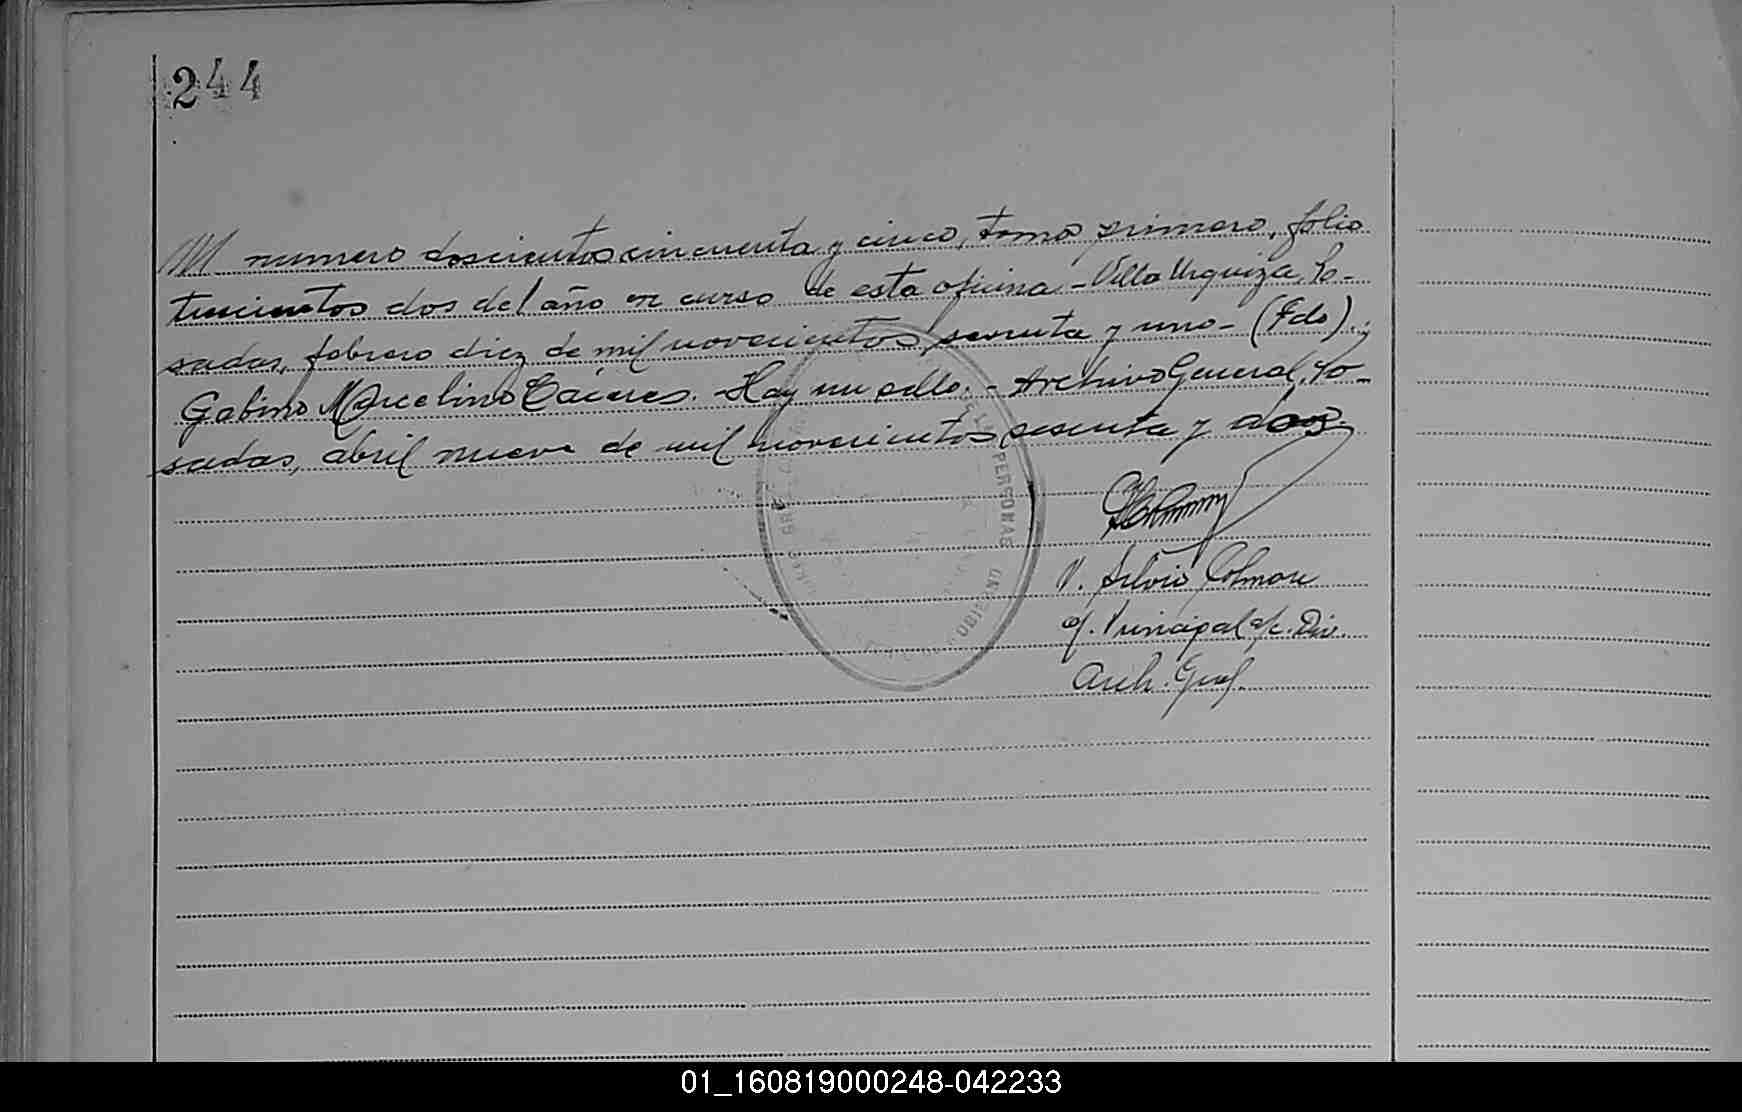 244
numero doscientos cincuenta y cinco, tomo primero, folio
trescientos dos del año en curso de esta oficina - Villa Urquiza, Po-
sadas, febrero diez de mil novecientos sesenta y uno - (Fdo).:
Gabino Marcelino Cáceres. - Hay un sello. - Archivo General, Po-
sadas, abril nueve de mil novecientos sesenta y dos.
DE LAS PERSONAS
V. Silvio Colman
of. Principal a/c. Div.
Arch. Gral.
01_160819000248-042233